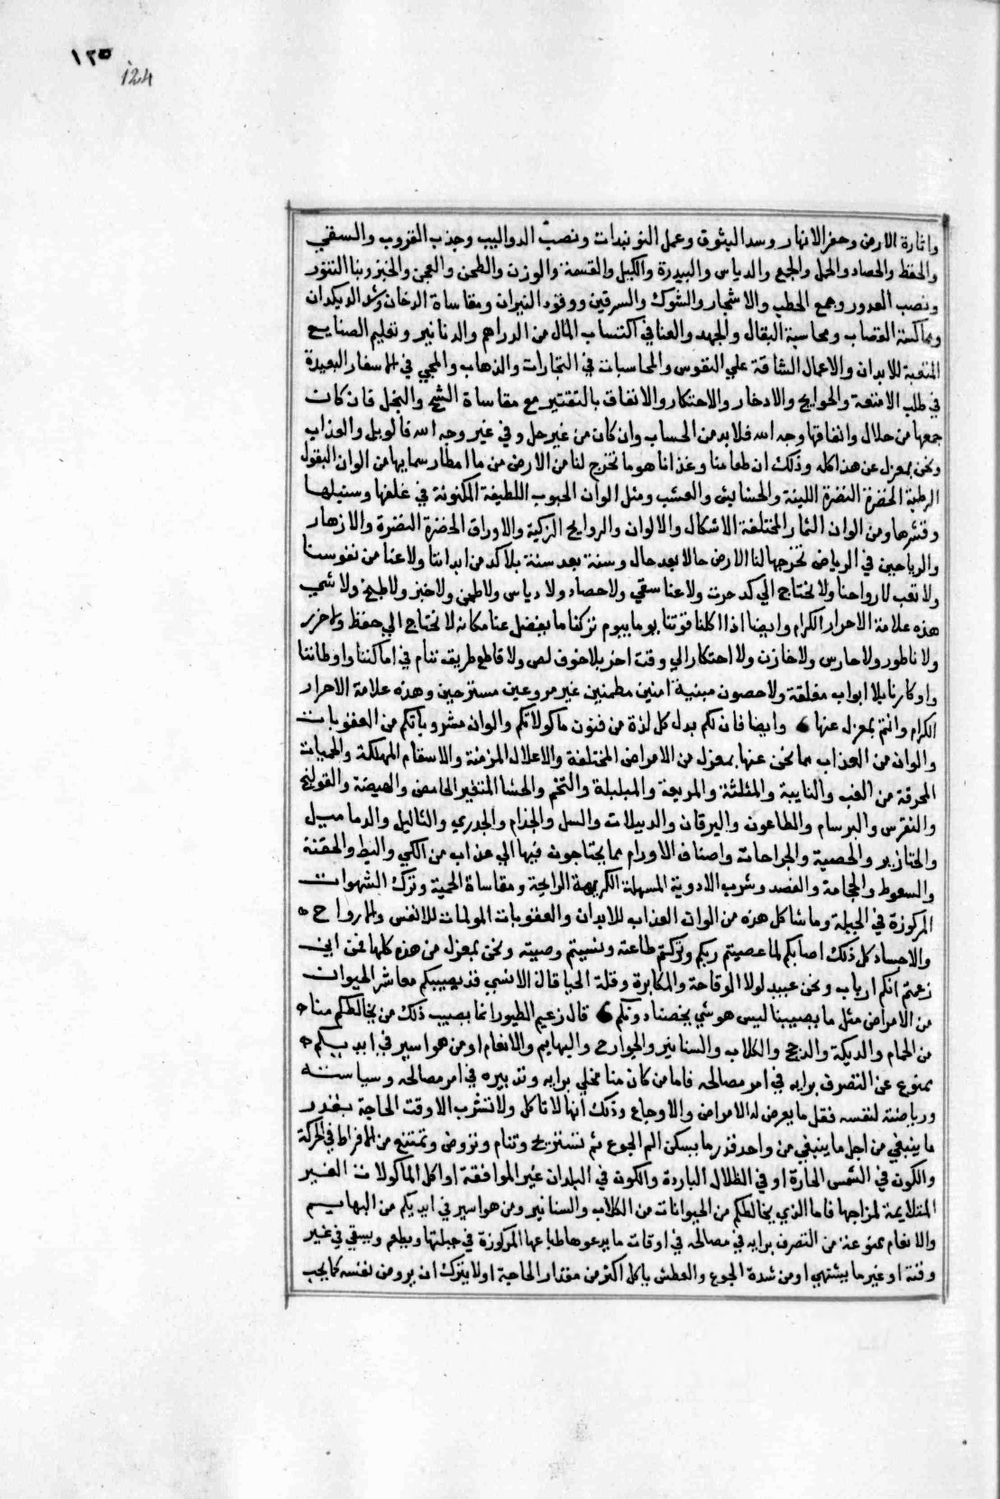 ١٢٥
124
واثارة الارض وحفر الانهار وسد البثوق وعمل البونيدات ونصب الدواليب وجذب الغروب والسقي
والحفظ والحصاد والحمل والجمع والدياس والبيدرة والكيل والقسمة والوزن والطحن والعجن والخبز وبنا التنور
ونصب القدور وجمع الحطب والاشجار والشوك والسرقين ووقود النيران ومقاساة الدخان وسد الديكدان
ومماكسة القصاب ومحاسبة البقال والجهد والعنا في اكتساب المال من الدراهم والدنانير وتعليم الصنايع
المتعبة للابدان والاعمال الشاقة علي النفوس والمحاسبات في التجارات والذهاب والمجي في الاسفار البعيدة
في طلب الامتعة والحوايج والادخار والاحتكار والانفاق بالتقتير مع مقاساة الشح والبخل فان كان
جمعها من حلال وانفاقها وجه الله فلابد من الحساب وان كان من غير حل وفي غير وجه الله فالويل والعذاب
ونحن بمعزل عن هذا كله وذلك ان طعامنا وغذانا هو ما تخرج لنا من الارض من ما امطار سمايها من الوان البقول
الرطبة الخضرة النضرة اللينة والحشايش والعشب ومثل الوان الحبوب اللطيفة المكنونة في غلفها وسنبلها
وقشرها ومن الوان الثمار المختلفة الاشكال والالوان والروايح الزكية والاوراق الخضرة النضرة والازهار
والرياحين في الرياض تخرجها لنا الارض حالا بعد حال وسنة بعد سنة بلا كد من ابداننا ولا عنا من نفوسنا
ولا تعب لارواحنا ولا نحتاج الي كد حرث ولا عنا سقي ولا حصاد ولا دياس ولا طحن ولا خبز ولا طبخ ولا شي
هذه علامة الاحرار الكرام وايضا اذا اكلنا قوتنا يوما بيوم تركنا ما يفضل عنا مكانه لا نحتاج الي حفظ ولا حرز
ولا ناطور ولا حارس ولا خازن ولا احتكار الي وقت اخر بلا خوف لص ولا قاطع طريق ننام في اماكننا واوطاننا
واوكارنا بلا ابواب مغلقة ولا حصون مبنية امنين مطمنين غير مروعين مستريحين وهذه علامة الاحرار
الكرام وانتم بمعزل عنها ٥ وايضا فان لكم بدل كل لذة من فنون ماكولاتكم والوان مشروباتكم من العقوبات
والوان من العذاب مما نحن عنها بمعزل من الامراض المختلفة والاعلال المزمنة والاسقام المهلكة والحميات
المحرقة من الغب والنايبة والمثلثة والمربعة والمبلبلة والتخم والجشا المتغير الحامض والهيضة والقولنج
والنقرس والبرسام والطاعون واليرقان والدبيلات والسل والجذام والجدري والثاليل والدماميل
والخنازير والحصبة والجراحات واصناف الاورام مما يحتاجون فيها الي عذاب من الكي والبط والحقنة
والسعوط والحجامة والفصد وشرب الادوية المسهلة الكريهة الرايحة ومقاساة الحمية وترك الشهوات
المركوزة في الجبلة وما شاكل هذه من الوان العذاب للابدان والعقوبات المولمات للانفس والارواح
والاجساد كل ذلك اصابكم لما عصيتم ربكم وتركتم طاعته ونسيتم وصيته ونحن بمعزل من هذه كلها فمن اين
زعمتم انكم ارباب ونحن عبيد لولا الوقاحة والمكابرة وقلة الحيا قال الانسي قد يصيبكم معاشر الحيوان
من الامراض مثل ما يصيبنا ليس هو شي يخصنا دونكم ٥ قال زعيم الطيور انما يصيب ذلك من يخالطكم منا
من الحمام والديكة والدجج والكلاب والسنانير والجوارح والبهايم والانعام او من هو اسير في ايديكم
ممنوع عن التصرف برايه في امر مصالحه فاما من كان منا مخلي برايه وتدبيره في امر مصالحه وسياسته
ورياضته لنفسه فقل ما يعرض له الامراض والاوجاع وذلك انها لا تاكل ولا تشرب الا وقت الحاجة بقدر
ما ينبغي من اجل ما ينبغي من واحد قدر ما يسكن الم الجوع ثم تستريح وتنام وتروض وتمتنع من الافراط في الحركة
والكون في الشمس الحارة او في الظلال الباردة والكون في البلدان غير الموافقة او اكل الماكولات الغير
المتلايمة لمزاجها فاما الذي يخالطكم من الحيوانات من الكلاب والسنانير ومن هو اسير في ايديكم من البهايم
والانعام ممنوعة من التصرف برايه في مصالحه في اوقات ما يدعوها طباعها المركوزة في جبلتها ويطعم ويسقي في غير
وقته او غير ما يشتهي او من شدة الجوع والعطش ياكل اكثر من مقدار الحاجة او لا يترك ان يروض نفسه كما يجب